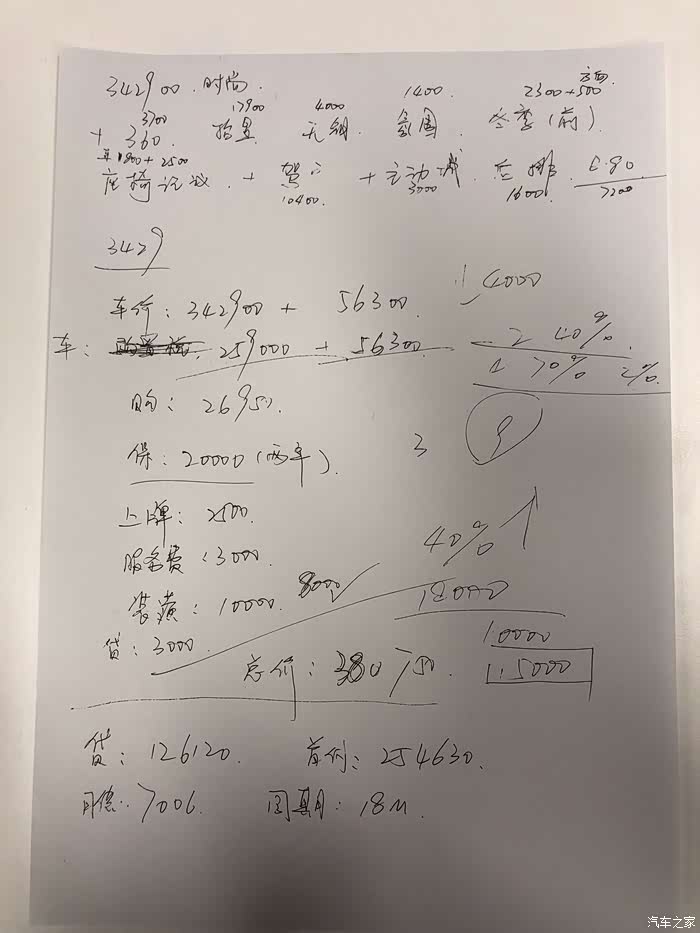 342900. 时尚. 1400. 2300+500 方向.
3700 17900 4000
+ 360. 拾音 无钢 氛围 冬季(前).
1800+2500
座椅记忆. + 驾 + 主动 后排 6.80
10400. 3000 1600. 7200
3429
车价: 342900 + 56300. 4000
车: 259000 + 56300. 2 40%.
1 70% 2%.
购: 26950. 9
保: 20000(两年). 3
上牌: 2500.
服务费: 3000. 40%
装潢: 10000. 8000 18000
贷: 3000. 10000
总价: 380750. 15000
贷: 126120. 首付: 254630.
月供: 7006. 周期: 18M.
汽车之家